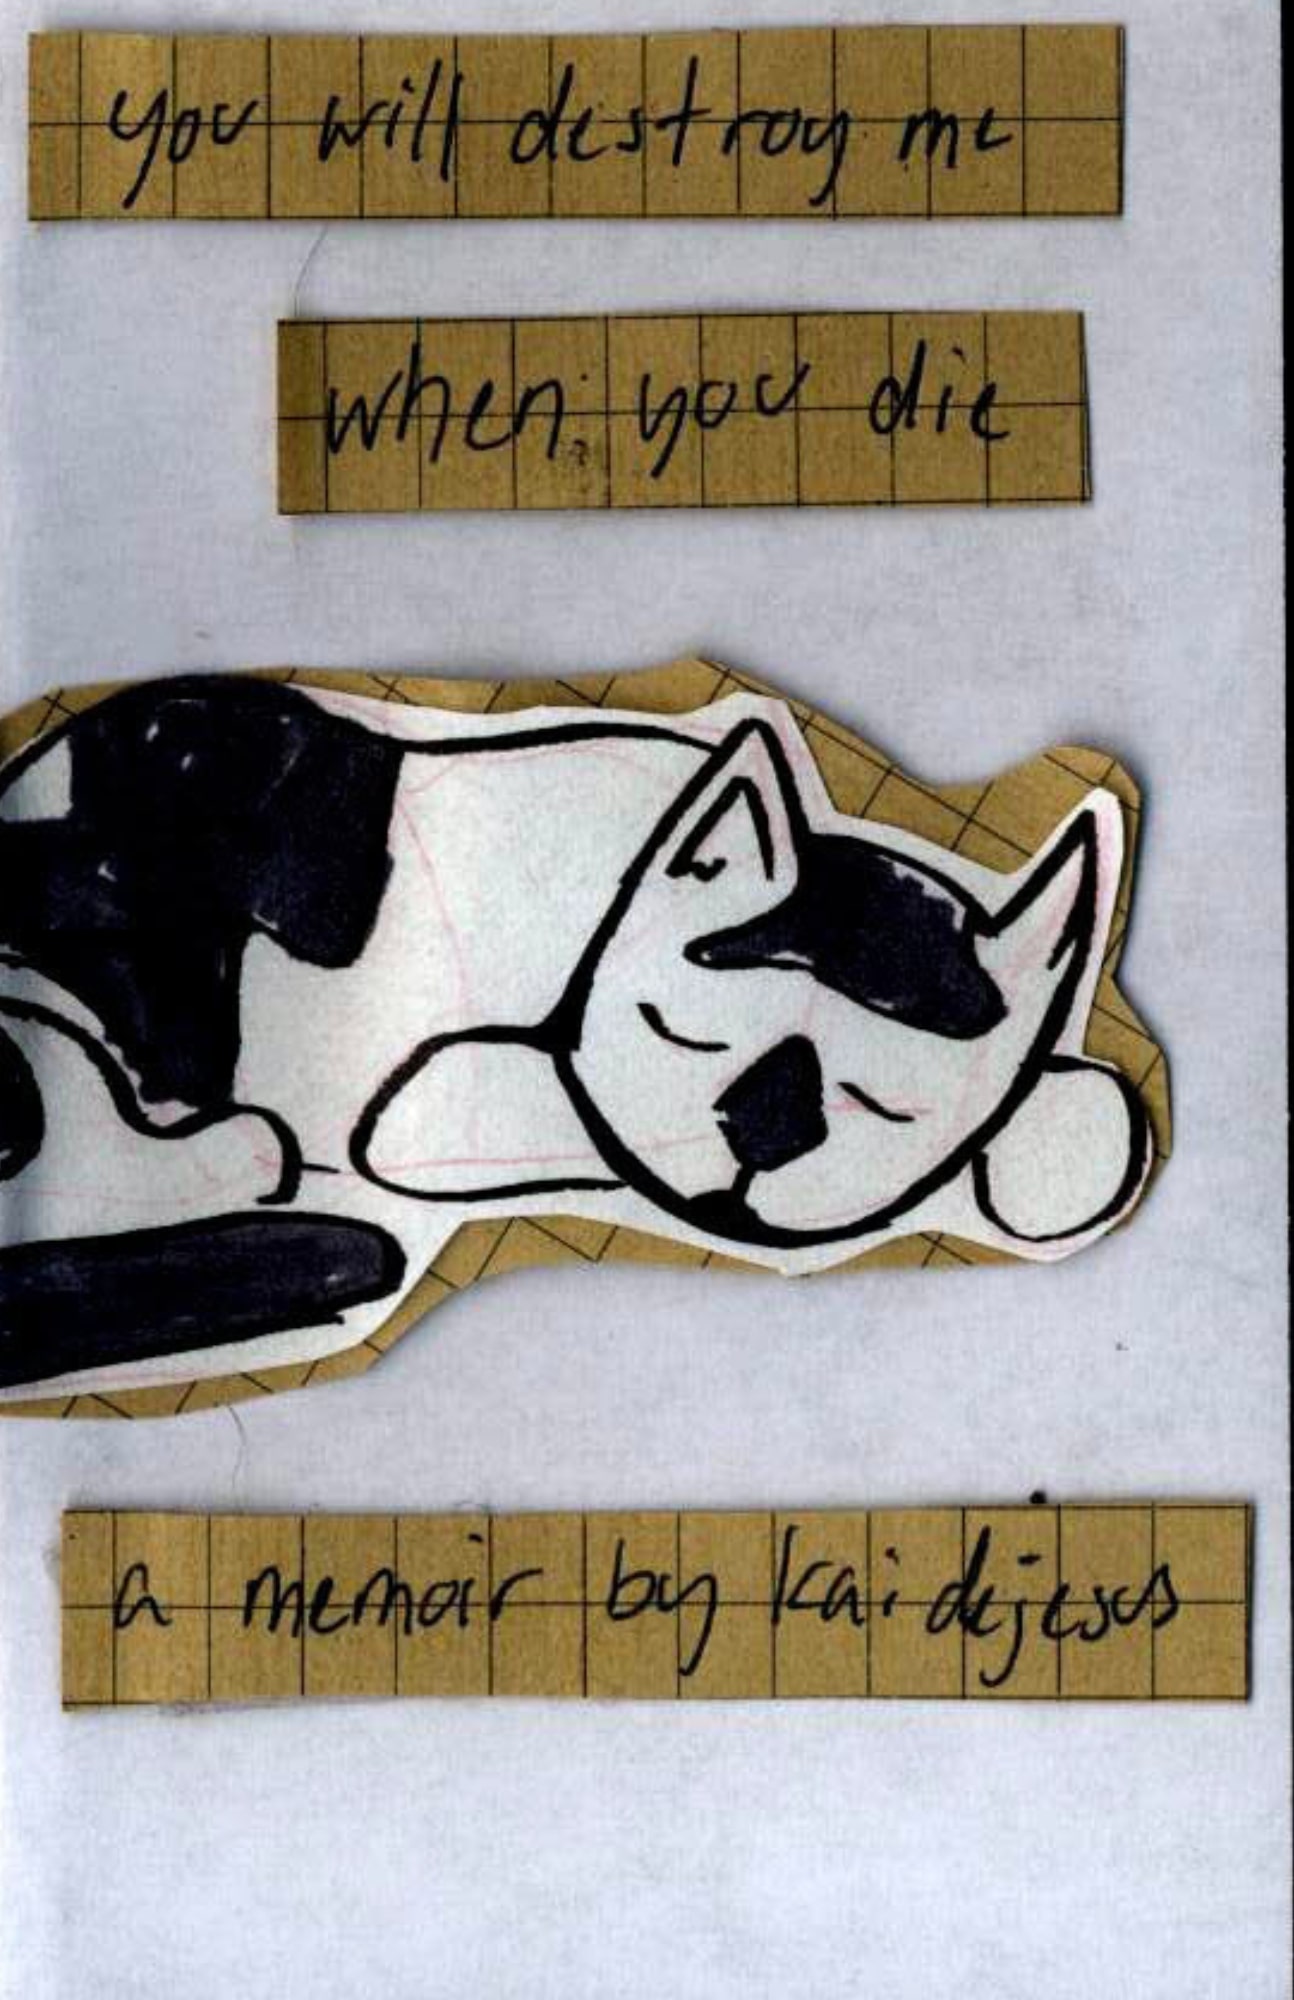 you will destroy me
when you die
a memoir by kai dejesus